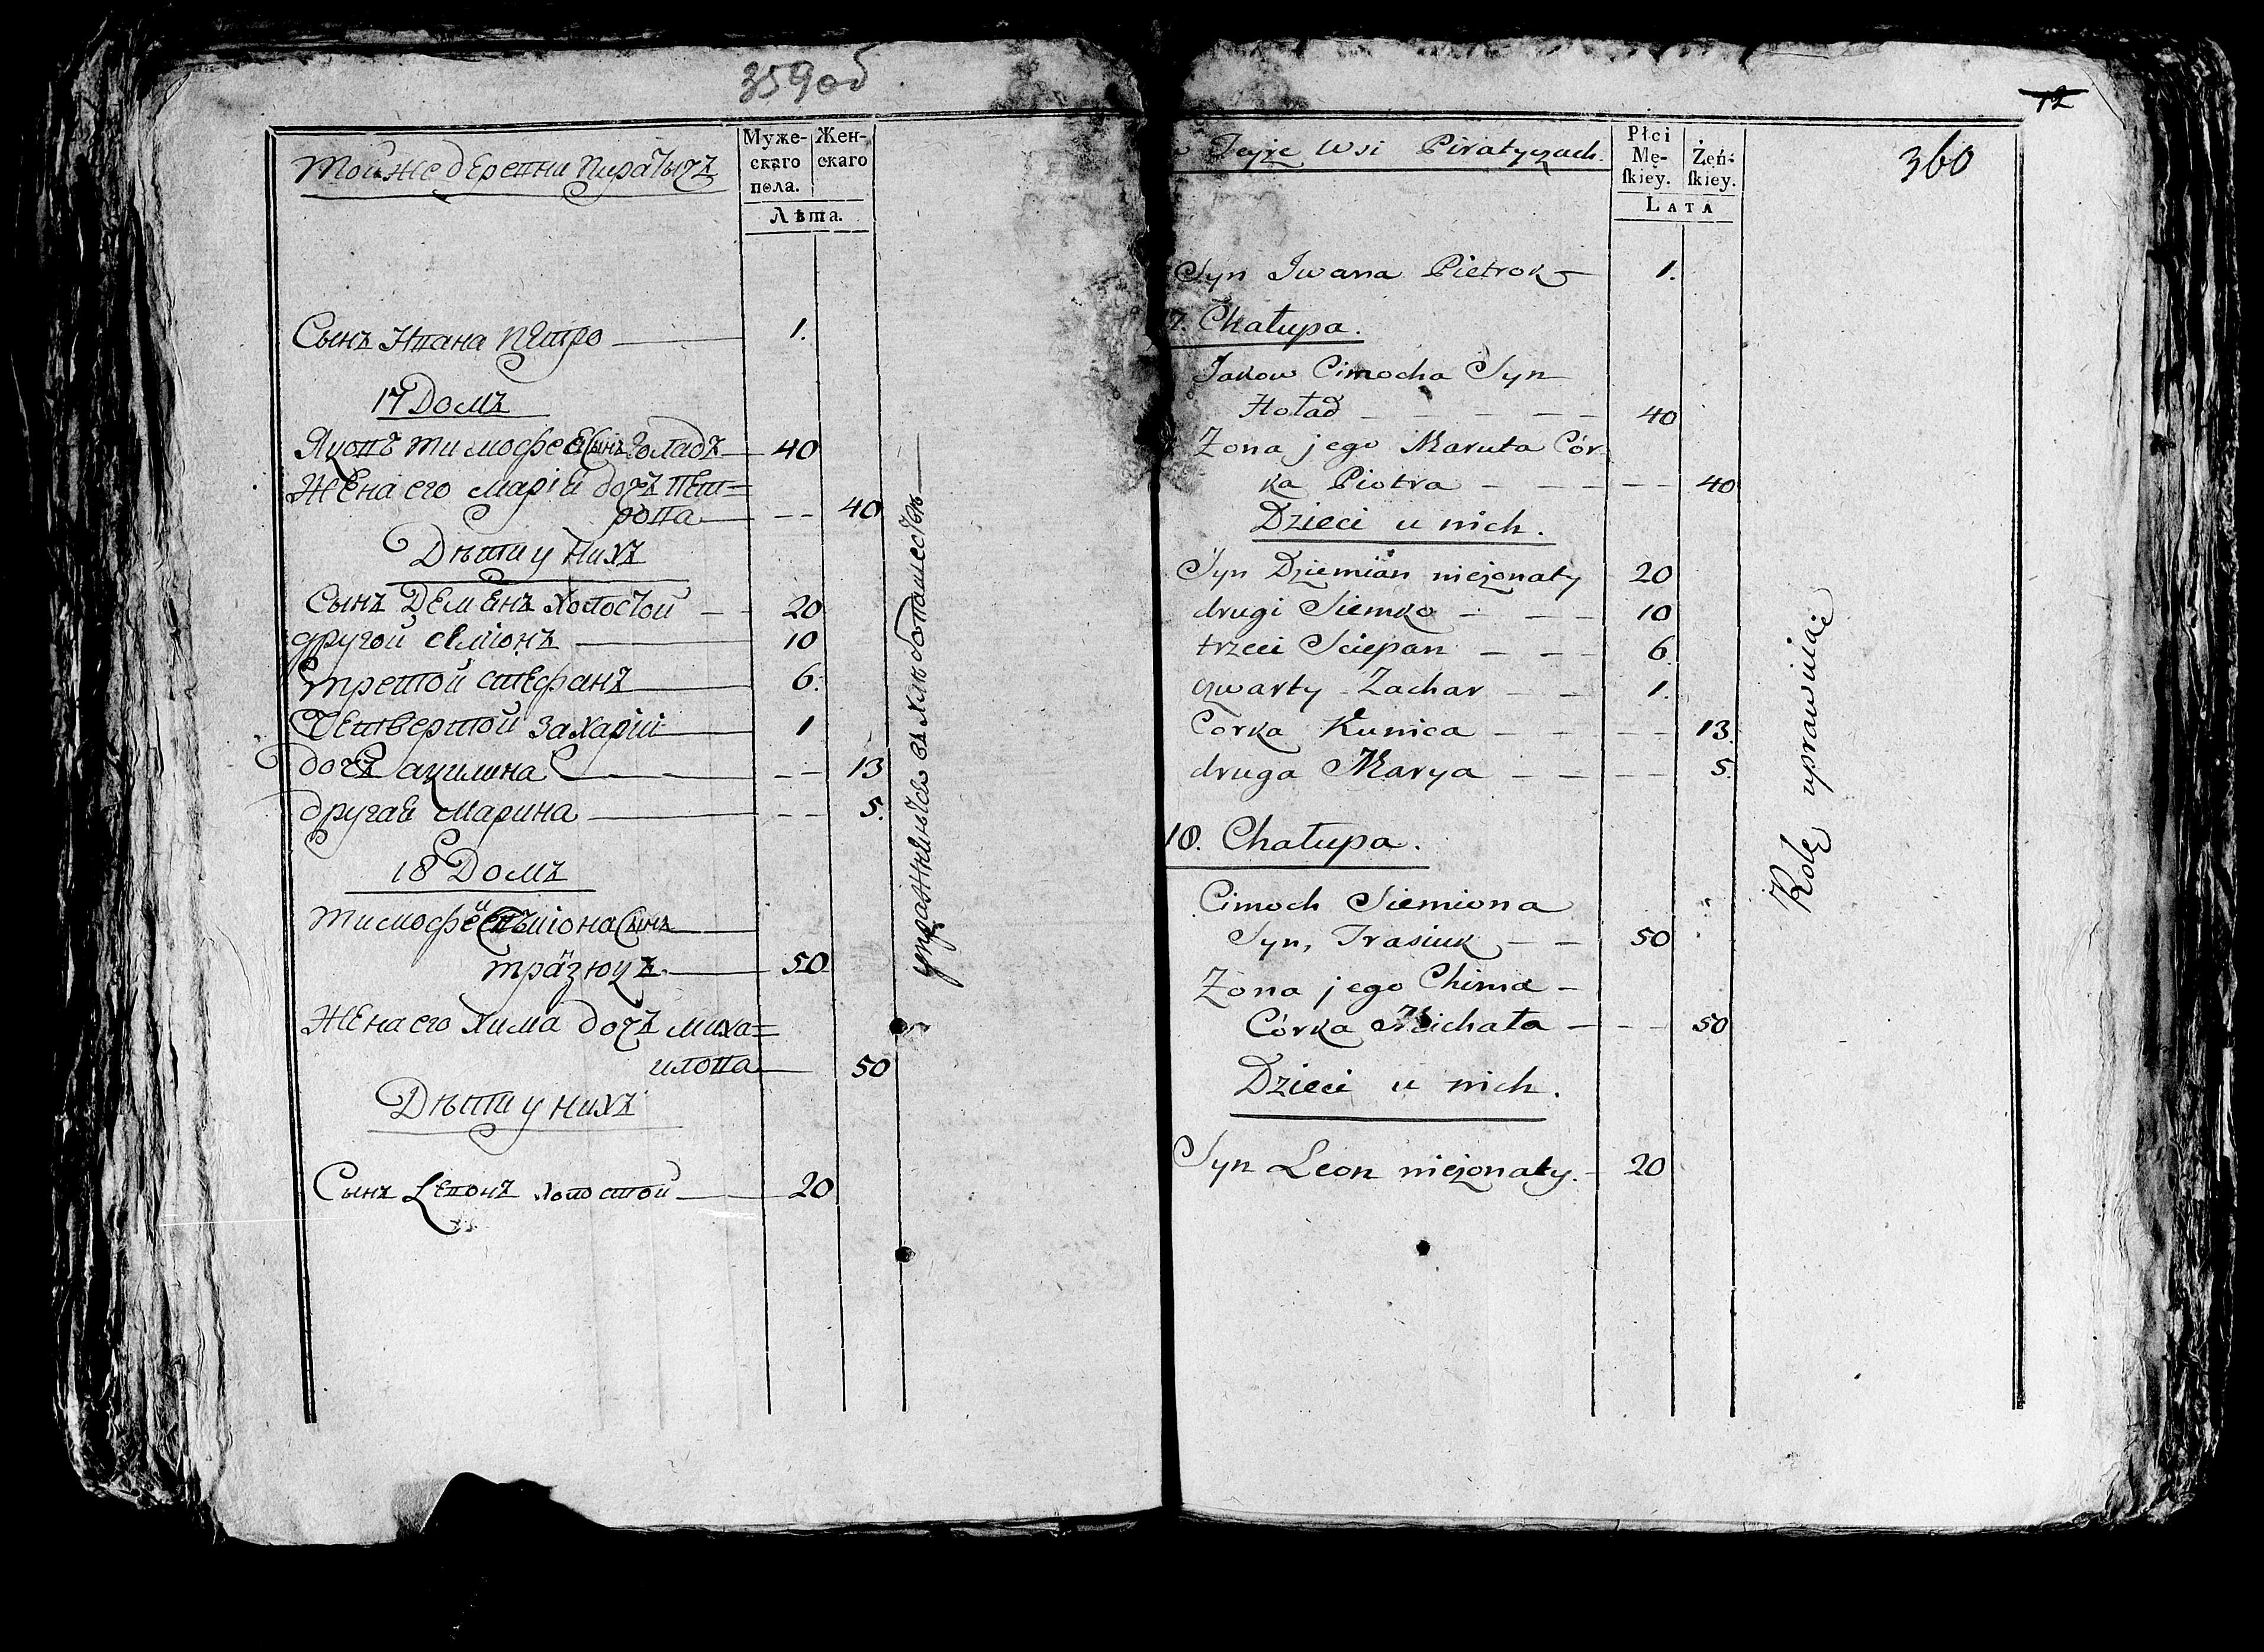 359об
Той же деревни Пиратычъ
Муже-
скаго
пола.
Жен-
скаго
Лѣта.
Сынъ Ивана Петро 1.
17 Домъ
Яковъ Тимофея Сынъ Голадъ 40
Жена его Марія дочь Пет=
рова 40
Дѣти у нихъ
Сынъ Деменъ холостой 20
другой Семіонъ 10
третой Стефанъ 6.
Четвертой Захарій 1
дочь Акилина 13
другая Марина 5.
18 Домъ
Тимофей Семіона Сынъ
Тразюкъ 50
Жена его Хима дочь Миха=
илова 50
Дѣти у нихъ
Сынъ Левонъ холостой 20
упражняются въ хлебопашестве
12
360
w Teyże Wsi Piratyczach.
Płci
Mę-
skiey.
Żeń-
skiey.
LATA
Syn Iwana Pietrok 1.
17. Chałupa.
Jakow Cimocha Syn
Hoład 40
Żona jego Maruta Cór
ka Piotra 40
Dzieci u nich.
Syn Dziemian nieżonaty 20
drugi Siemko 10
trzeci Sciepan 6.
czwarty Zachar 1.
Corka Kunica 13.
druga Marya 5.
18. Chałupa.
Cimoch Siemiona
Syn, Trasiuk 50
Żona jego Chima
Córka Michała 50
Dzieci u nich.
Syn Leon nieżonaty. 20
Rolę uprawiaią